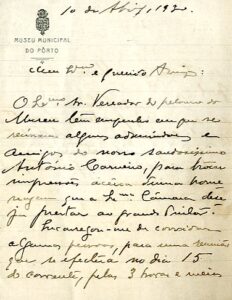 10 de Abril, 192
MUSEU MUNICIPAL
DO PÔRTO
Meu Ex.mo e querido Amigo:
O Ex.mo Sr. Vereador do pelouro do
Museu tem em que se
reunam alguns admiradores e
amigos do nosso saudosissimo
António Carneiro, para trocar
impressões acêrca duma home
nagem que a Ex.ma Câmara dese
ja prestar ao grande Pintor.
Encarregou-me de convidar
algumas pessoas, para uma reunião
que se efectua no dia 15
do corrente, pelas 3 horas e meia